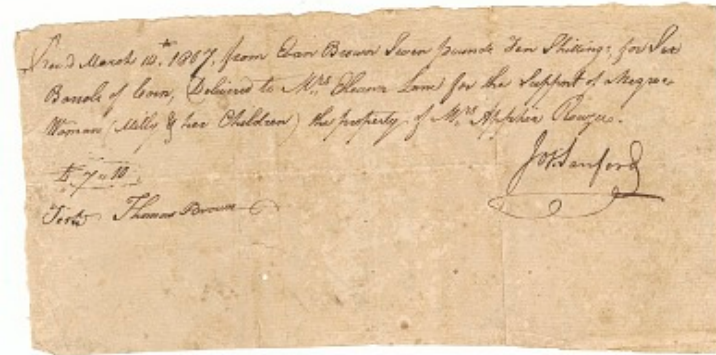 Rec'd March 14th. 1807, from Evan Brown Seven pounds Ten Shillings, for Six
Barrels of Corn, Delivered to Mrs. Eleanor Lane for the Support of Negroe
Woman (Milly & her Children) the property of Mrs. Apphia Rouzee.
Jos Sanford
£ 7 " 10
Teste Thomas Brown